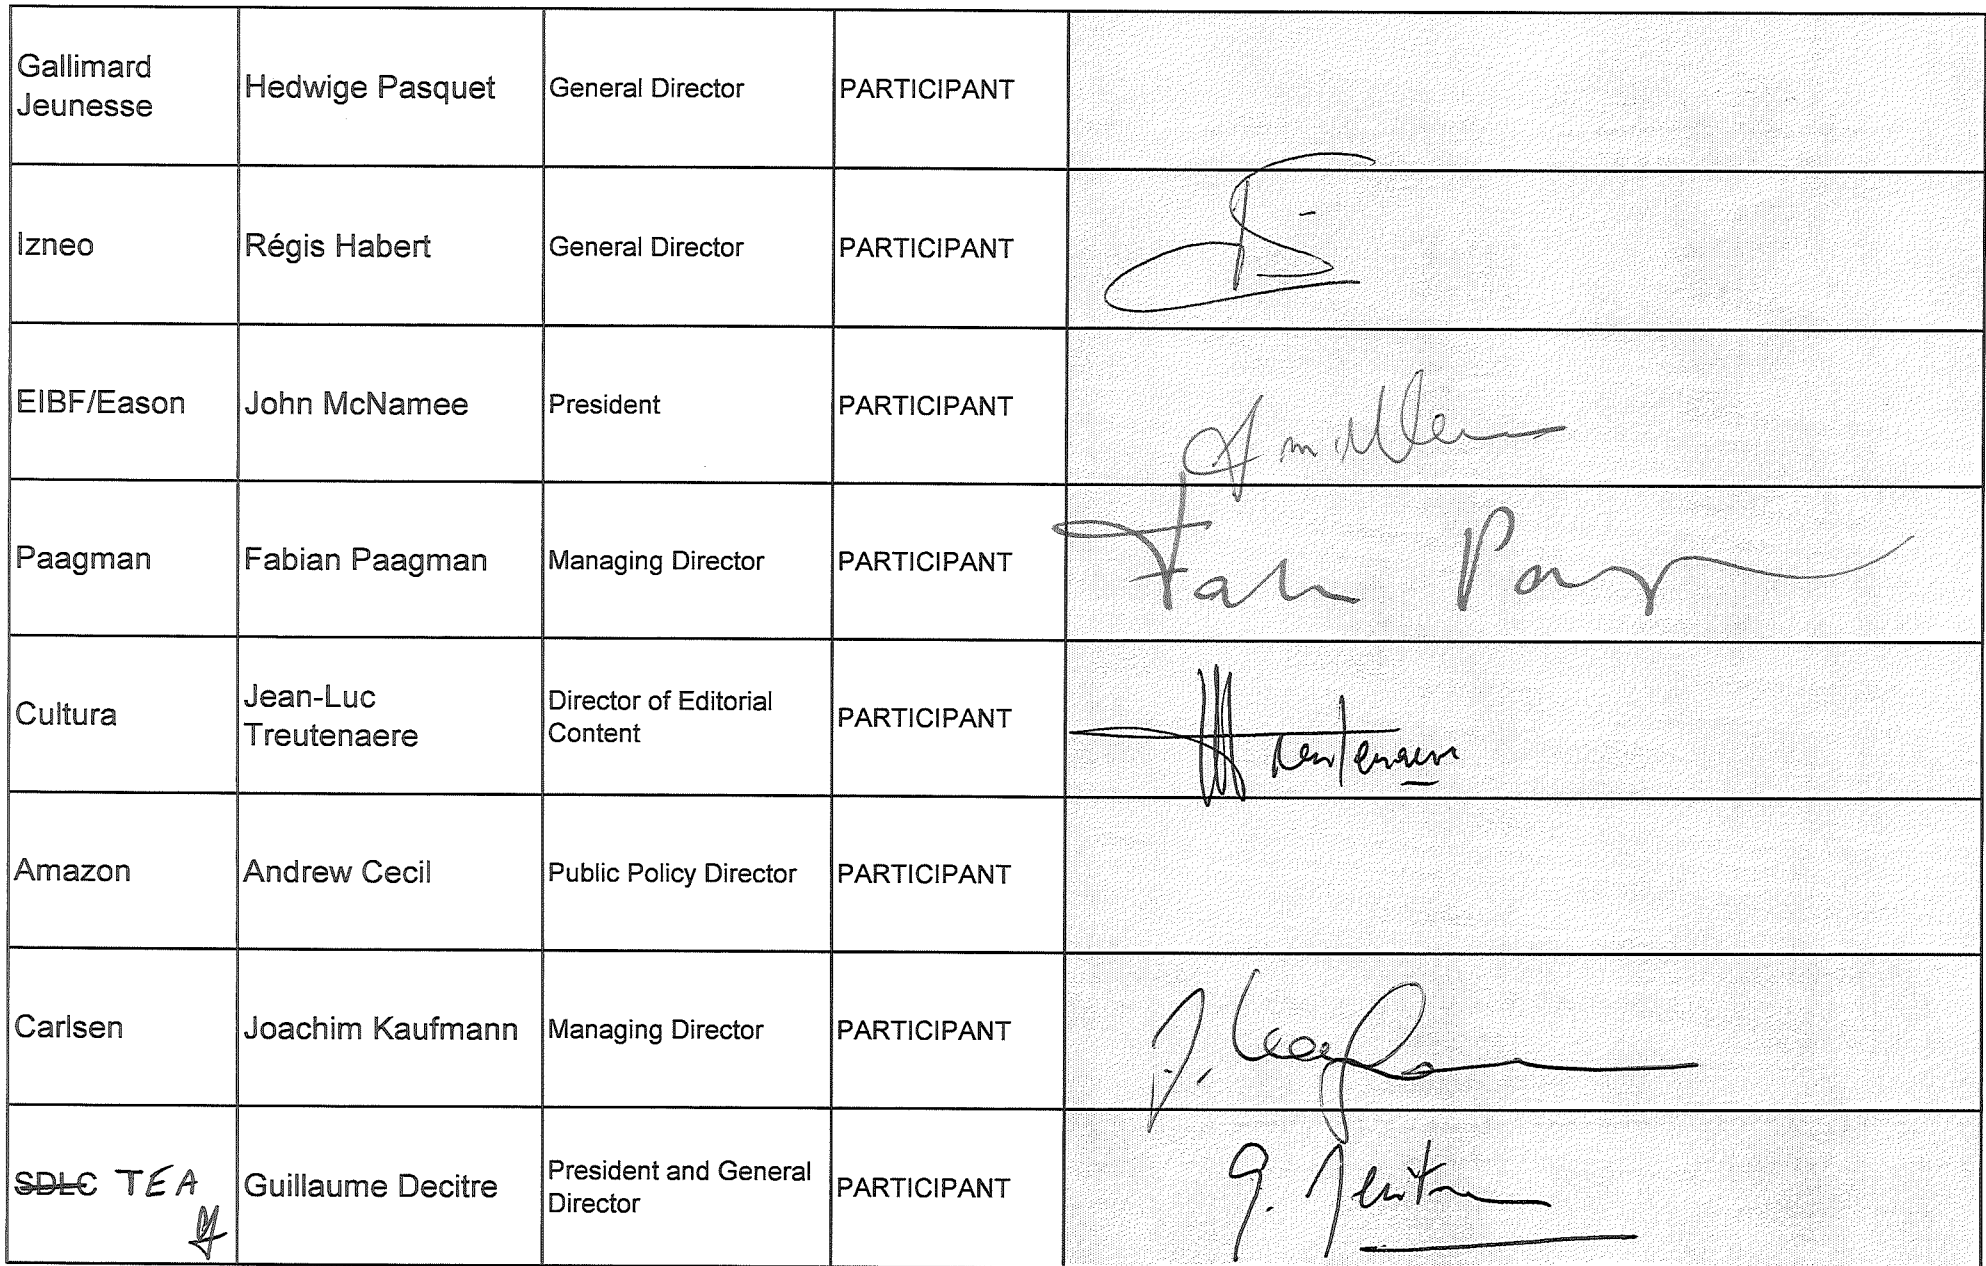 Gallimard
Jeunesse
Hedwige Pasquet
General Director
PARTICIPANT
Izneo
Régis Habert
General Director
PARTICIPANT
EIBF/Eason
John McNamee
President
PARTICIPANT
Paagman
Fabian Paagman
Managing Director
PARTICIPANT
Cultura
Jean-Luc
Treutenaere
Director of Editorial
Content
PARTICIPANT
Amazon
Andrew Cecil
Public Policy Director
PARTICIPANT
Carlsen
Joachim Kaufmann
Managing Director
PARTICIPANT
SDLC TEA
Guillaume Decitre
President and General
Director
PARTICIPANT